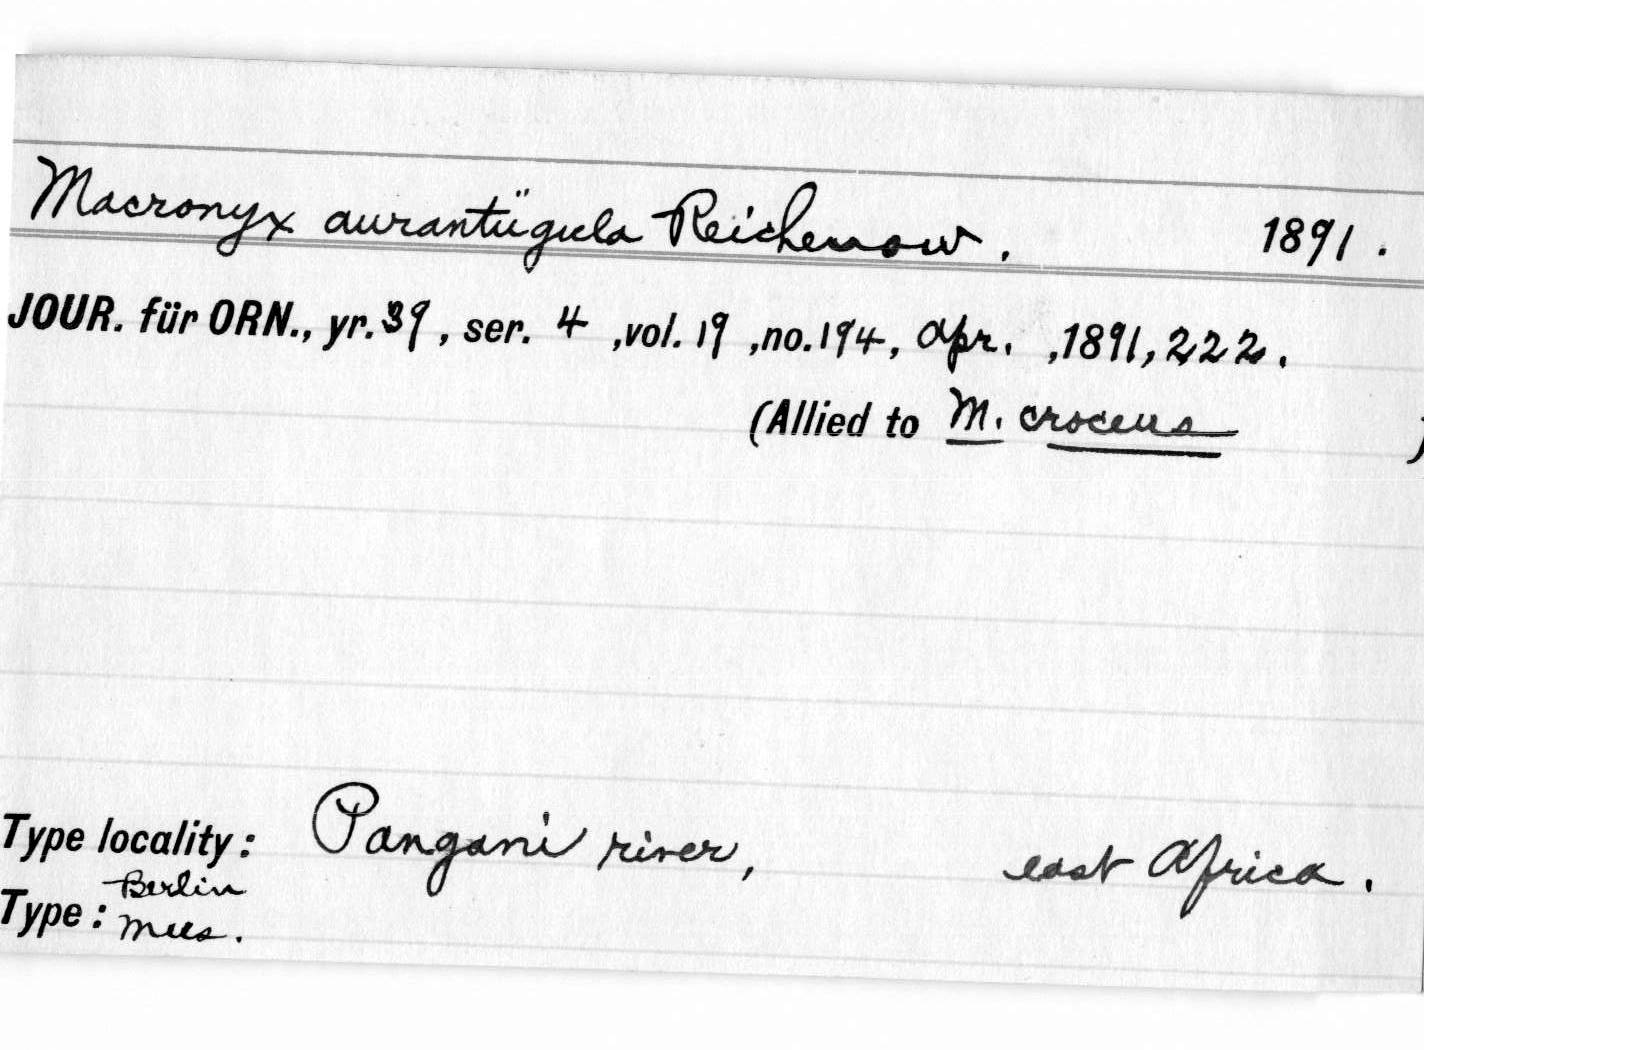 Macronyx aurantiigula Reichenow. 1891.
JOUR. für ORN., yr. 39, ser. 4, vol. 19, no. 194, Apr., 1891, 222.
(Allied to M. croceus )
Type locality: Pangani river, east Africa.
Type: Berlin Mus.